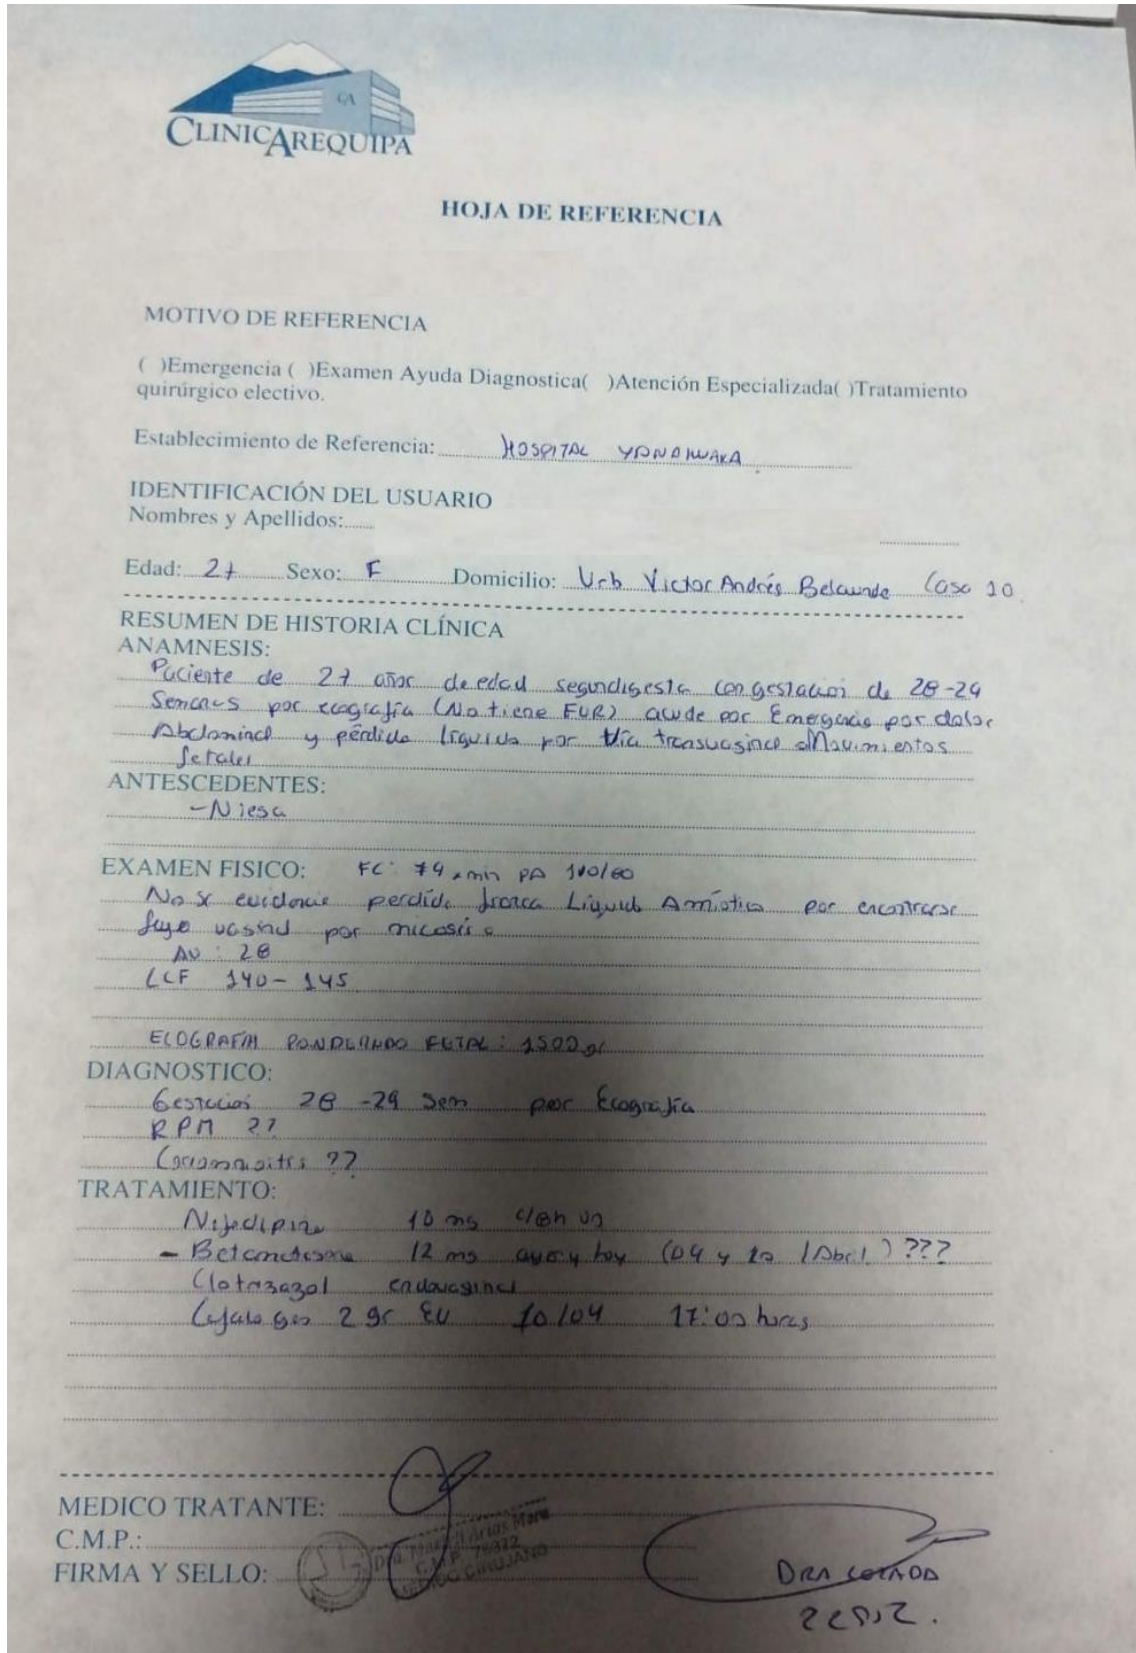 CA
CLINICAREQUIPA
HOJA DE REFERENCIA
MOTIVO DE REFERENCIA
( )Emergencia ( )Examen Ayuda Diagnostica( )Atención Especializada( )Tratamiento
quirúrgico electivo.
Establecimiento de Referencia: HOSPITAL
IDENTIFICACIÓN DEL USUARIO
Nombres y Apellidos:
Edad: 27 Sexo: F Domicilio: Urb Victor Andrés Belaunde Casa 10
RESUMEN DE HISTORIA CLÍNICA
ANAMNESIS:
Paciente de 27 años de edad segundigesta con gestacion de 28-29
Semanas por ecografía (No tiene FUR) acude por Emergencia por dolor
Abdominal y pérdida liquido por Vía transvaginal Movimientos
fetales
ANTESCEDENTES:
- Niega
EXAMEN FISICO: FC: 74 x min PA 100/60
No se evidencia perdida franca Liquido Amiotico por encontrarse
flujo vaginal por micosis
AU: 28
LCF 140-145
ECOGRAFIA PONDERADO FETAL: 1500 gr
DIAGNOSTICO:
Gestacion 28-29 sem por Ecografía
RPM ??
??
TRATAMIENTO:
Nifedipino 10 mg c/8h
- Betametasona 12 mg ayer y hoy (09 y 10 /Abril) ???
endovaginal
2 gr EV 10/04 17:00 horas
MEDICO TRATANTE:
C.M.P.:
FIRMA Y SELLO:
Arias
C.M.P.
CIRUJANO
DRA